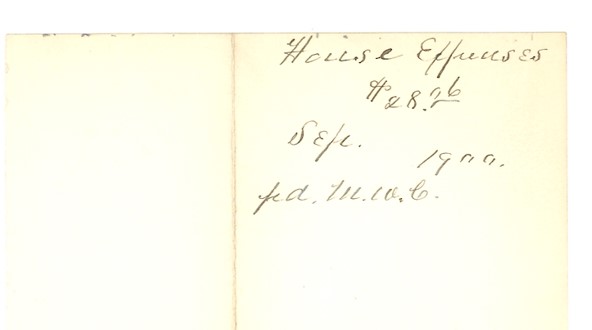 House Expenses
$28.26
Sep.
1900.
pd. M.W.C.